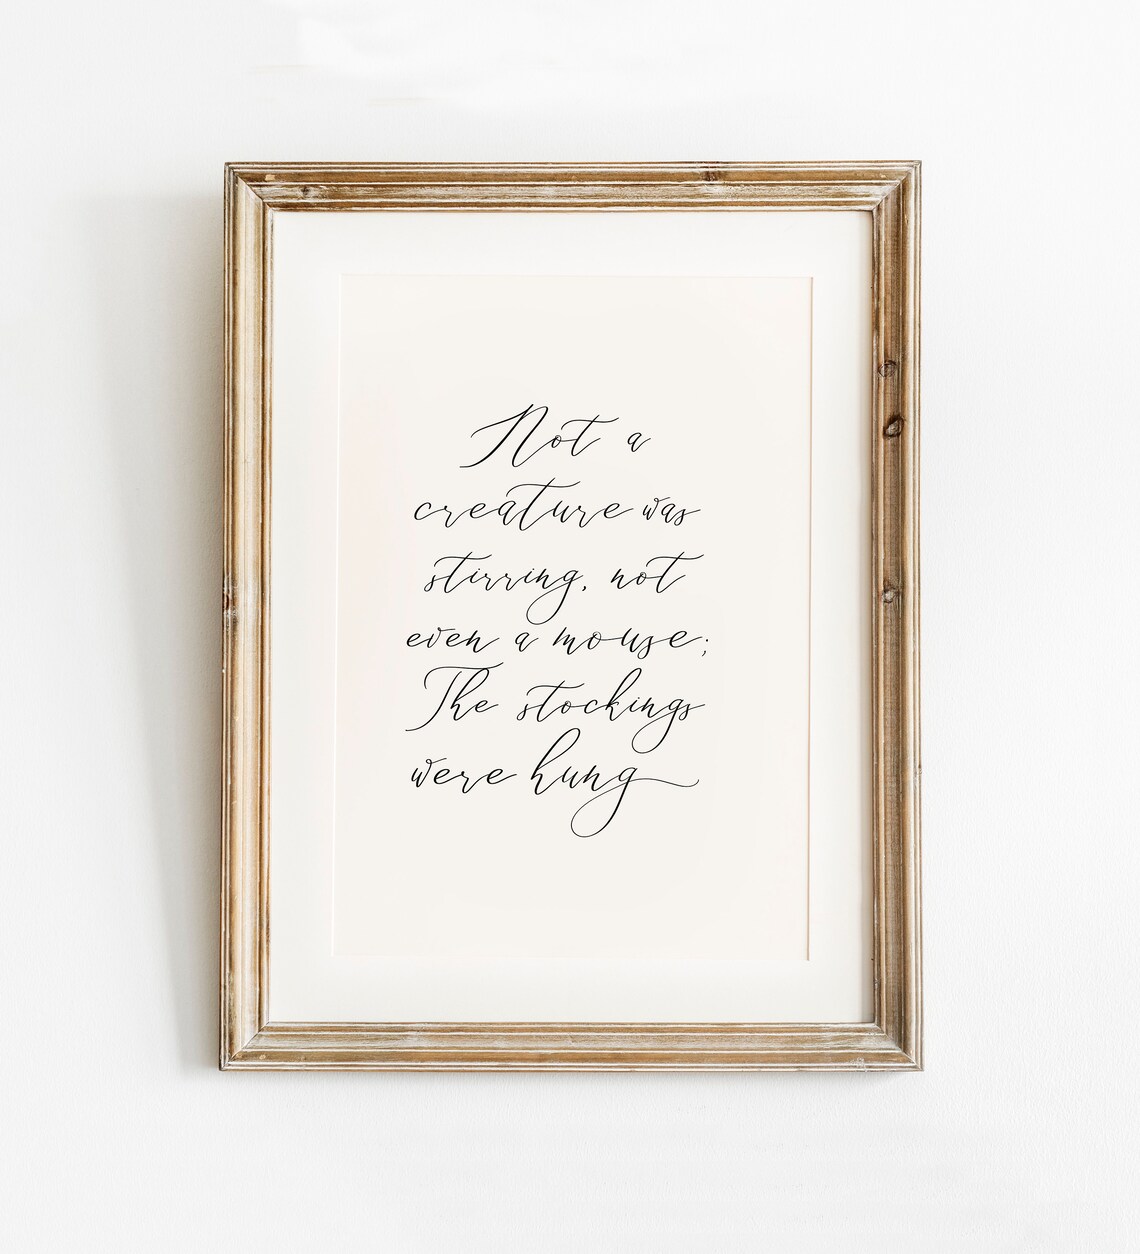 Not a
creature was
stirring, not
even a mouse;
The stockings
were hung